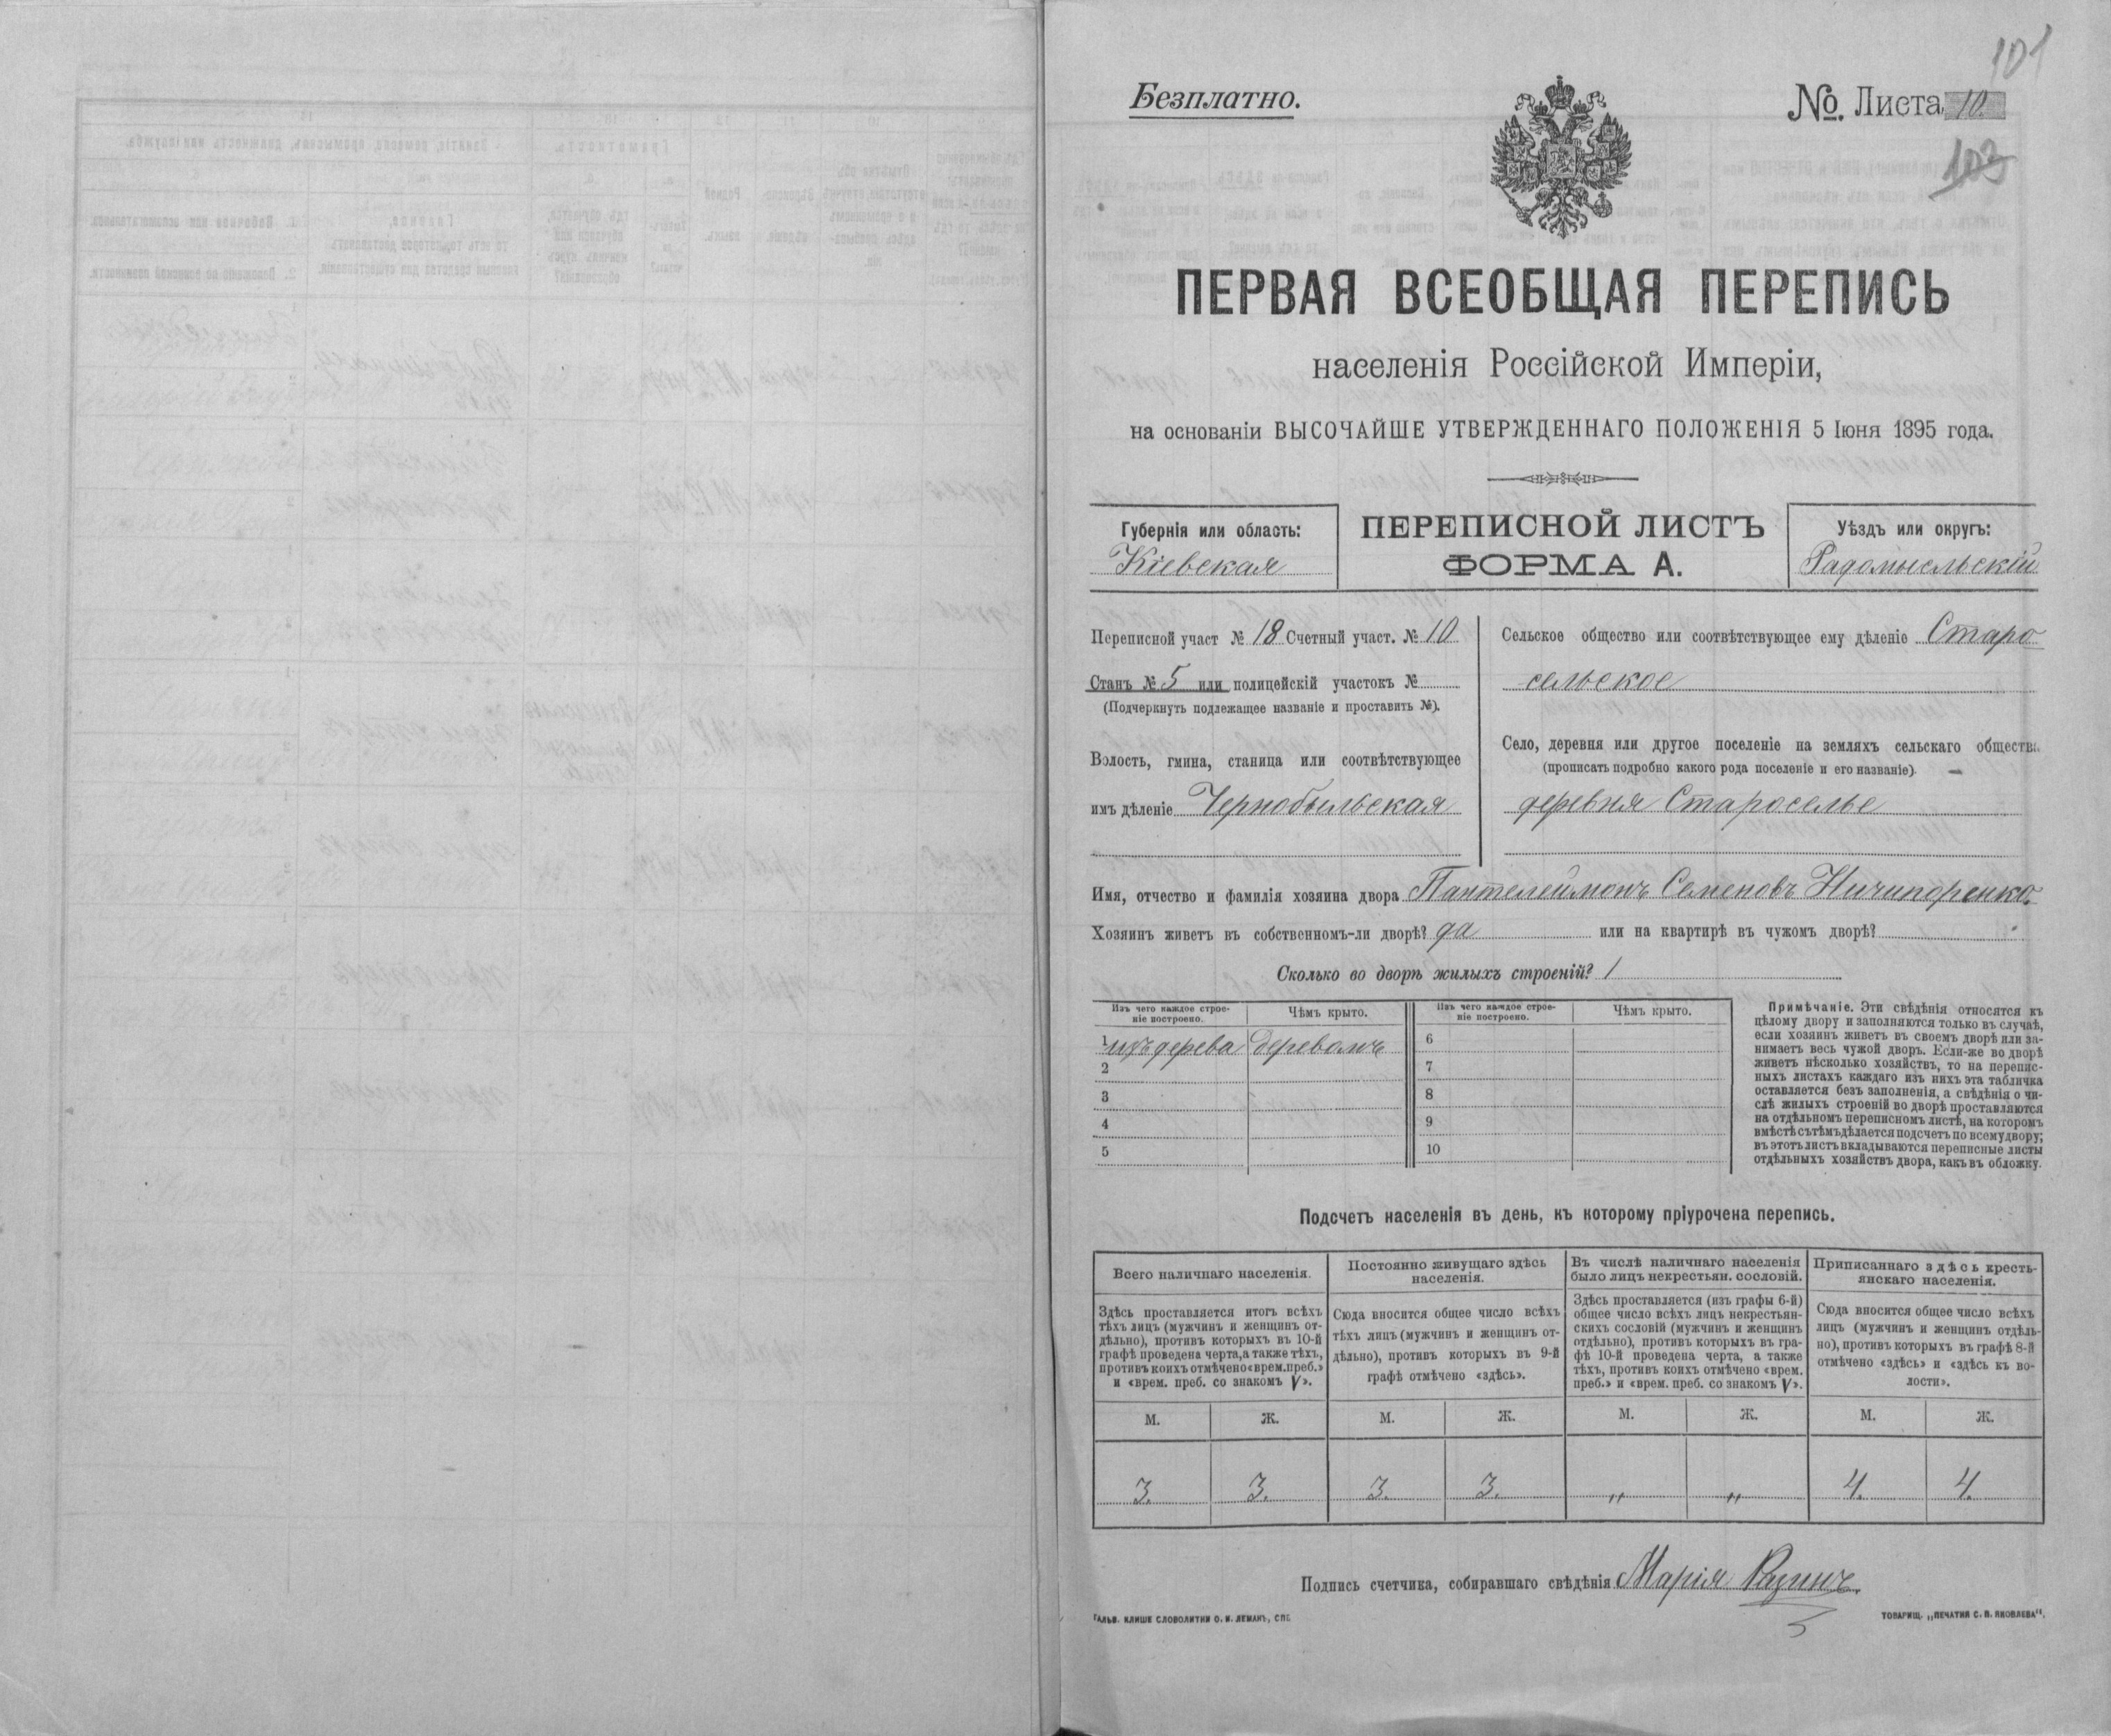 101
Безплатно.
№. Листа 10.
103
ПЕРВАЯ ВСЕОБЩАЯ ПЕРЕПИСЬ
населенія Россійской Имперіи,
на основаніи ВЫСОЧАЙШЕ УТВЕРЖДЕННАГО ПОЛОЖЕНІЯ 5 Іюня 1895 года.
Губернія или область:
Кіевская
ПЕРЕПИСНОЙ ЛИСТЪ
ФОРМА А.
Уѣздъ или округъ:
Радомысльскій
Переписной участ № 18 Счетный участ. № 10
Станъ № 5 или полицейскій участокъ №
(Подчеркнуть подлежащее названіе и проставить №).
Волость, гмина, станица или соотвѣтствующее
имъ дѣленіе Чернобыльская
Сельское общество или соотвѣтствующее ему дѣленіе Старо
сельское
Село, деревня или другое поселеніе на земляхъ сельскаго общества
(прописать подробно какого рода поселеніе и его названіе).
деревня Староселье
Имя, отчество и фамилія хозяина двора Пантелеймонъ Семеновъ Ничипоренко.
Хозяинъ живетъ въ собственномъ-ли дворѣ? да или на квартирѣ въ чужомъ дворѣ?
Сколько во дворѣ жилыхъ строеній? 1
Изъ чего каждое строе-
ніе построено.
Чѣмъ крыто.
Изъ чего каждое строе-
ніе построено.
Чѣмъ крыто.
1 изъ дерева деревомъ
2
3
4
5
6
7
8
9
10
Примѣчаніе. Эти свѣдѣнія относятся къ
цѣлому двору и заполняются только въ случаѣ,
если хозяинъ живетъ въ своемъ дворѣ или за-
нимаетъ весь чужой дворъ. Если-же во дворѣ
живетъ нѣсколько хозяйствъ, то на перепис-
ныхъ листахъ каждаго изъ нихъ эта табличка
оставляется безъ заполненія, а свѣдѣнія о чи-
слѣ жилыхъ строеній во дворѣ проставляются
на отдѣльномъ переписномъ листѣ, на которомъ
вмѣстѣ съ тѣмъ дѣлается подсчетъ по всему двору;
въ этотъ листъ вкладываются переписные листы
отдѣльныхъ хозяйствъ двора, какъ въ обложку.
Подсчетъ населенія въ день, къ которому пріурочена перепись.
Всего наличнаго населенія.
Здѣсь проставляется итогъ всѣхъ
тѣхъ лицъ (мужчинъ и женщинъ от-
дѣльно), противъ которыхъ въ 10-й
графѣ проведена черта, а также тѣхъ,
противъ коихъ отмѣчено «врем. преб.»
и «врем. преб. со знакомъ V».
Постоянно живущаго здѣсь
населенія.
Сюда вносится общее число всѣхъ
тѣхъ лицъ (мужчинъ и женщинъ от-
дѣльно), противъ которыхъ въ 9-й
графѣ отмѣчено «здѣсь».
Въ числѣ наличнаго населенія
было лицъ некрестьян. сословій.
Здѣсь проставляется (изъ графы 6-й)
общее число всѣхъ лицъ некрестьян-
скихъ сословій (мужчинъ и женщинъ
отдѣльно), противъ которыхъ въ гра-
фѣ 10-й проведена черта, а также
тѣхъ, противъ коихъ отмѣчено «врем.
преб.» и «врем. преб. со знакомъ V».
Приписаннаго здѣсь кресть-
янскаго населенія.
Сюда вносится общее число всѣхъ
лицъ (мужчинъ и женщинъ отдѣль-
но), противъ которыхъ въ графѣ 8-й
отмѣчено «здѣсь» и «здѣсь къ во-
лости».
М. Ж. М. Ж. М. Ж. М. Ж.
3. 3. 3. 3. „ „ 4. 4.
Подпись счетчика, собиравшаго свѣдѣнія Марія
ГАЛЬВ. КЛИШЕ СЛОВОЛИТНИ О. И. ЛЕМАНЪ, СПБ.
ТОВАРИЩ. „ПЕЧАТНЯ С. П. ЯКОВЛЕВА“.